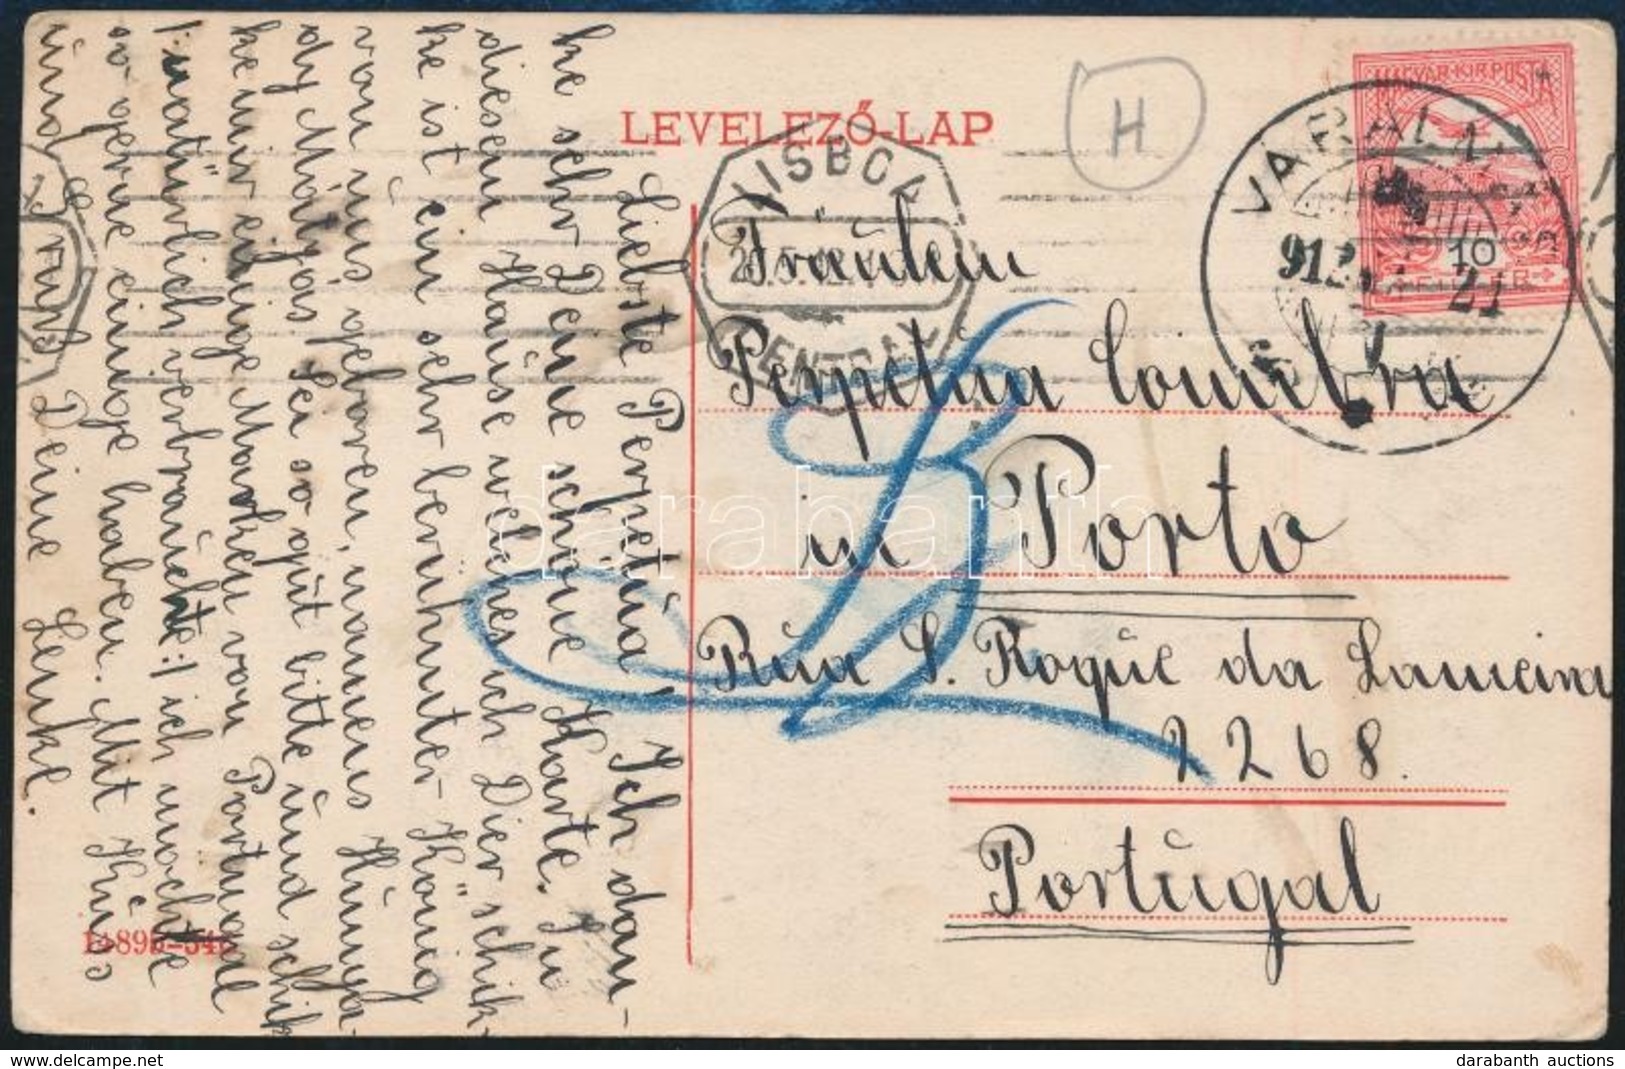 LEVELEZŐ-LAP
H
MAGYAR·KIR·POSTA
VÁRAL
912
10
21
LISBOA
CENTRAL
Fräulein
Perpetua Coimbra
in Porto
Rua S. Roque da Lameira
2268.
Portugal
Liebste Perpetua! Ich dan-
ke sehr Deine schöne Karte. In
diesem Hause welches ich Dier schik-
ke ist ein sehr berühmter König
von uns geboren, namens Hunya-
dy Mátyás. Sei so gut bitte und schik
ke mir einige Marken von Portugal
/:natürlich verbrauchte:/ ich möchte
so gerne einige haben. Mit Küss
und Gruß Deine Lenke.
darabanth
darabanth auctions